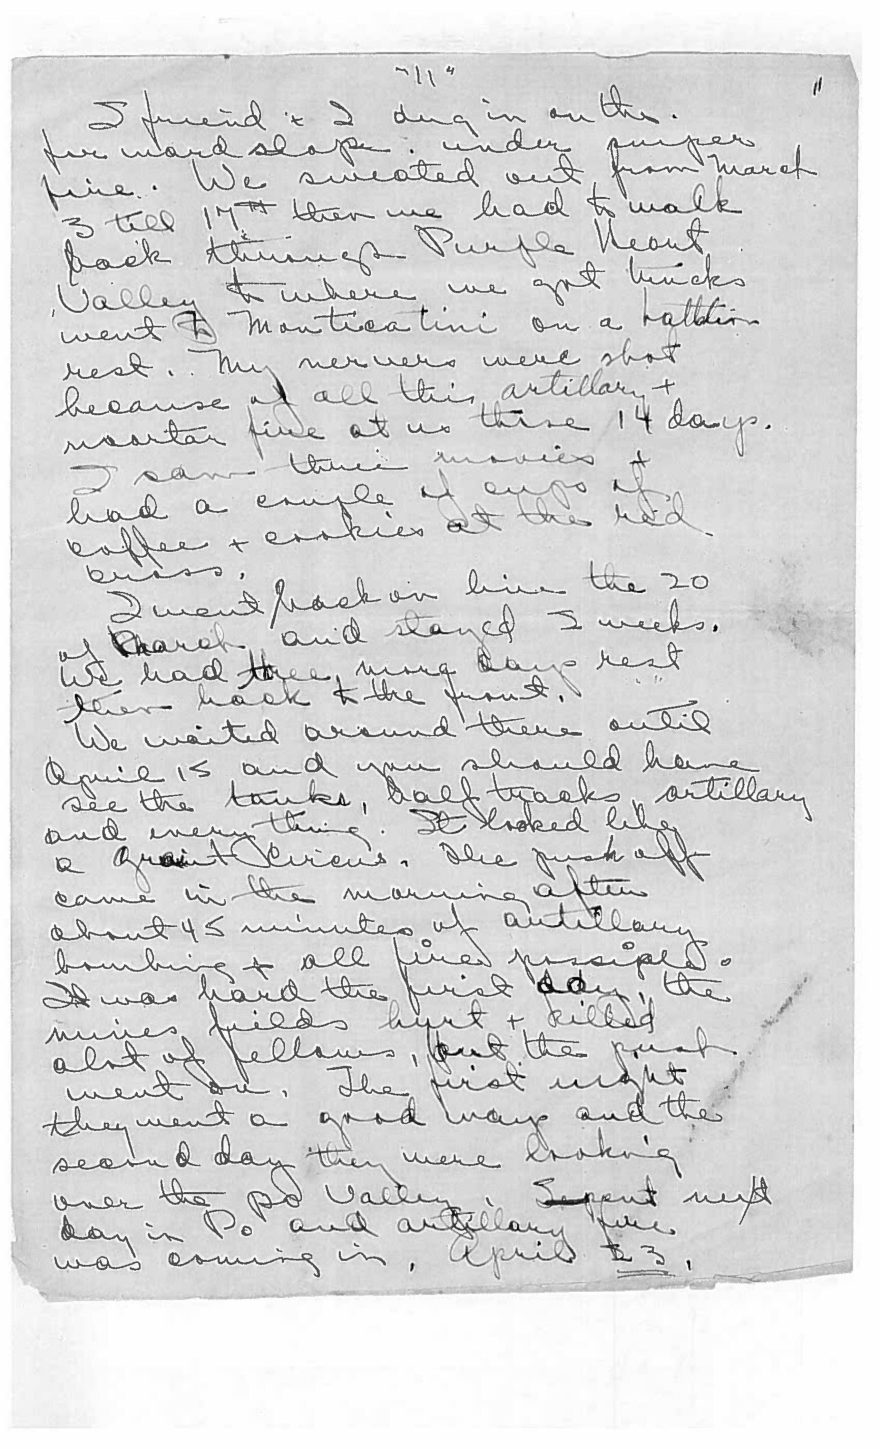 "11"
"
I friend + I dug in on the.
forward slope. under sniper
fire. We sweated out from March
3 till 17th then we had to walk
back through Purple Heart
Valley to where we got trucks
went to Monticatini on a battlion
rest. My nervers were shot
because of all this artillary +
moortar fire at us those 14 days.
I saw three movies +
had a couple of cups of
coffee + cookies at the red
cross.
I went back on line the 20
of March and stayed 2 weeks.
We had three more days rest
then back to the front.
We waited around there until
April 15 and you should have
see the tanks, half tracks, artillary
and every thing. It looked like
a graint Circus. The push off
came in the morning after
about 45 minutes of artillary
bombing + all fire possiple.
It was hard the first day, the
mines fields hurt + killed
alot of fellows, but the push
went on. The first night
they went a good ways and the
second day they were looking
over the po Valley. Sepent next
day in Po and artillary fire
was coming in, April 23,